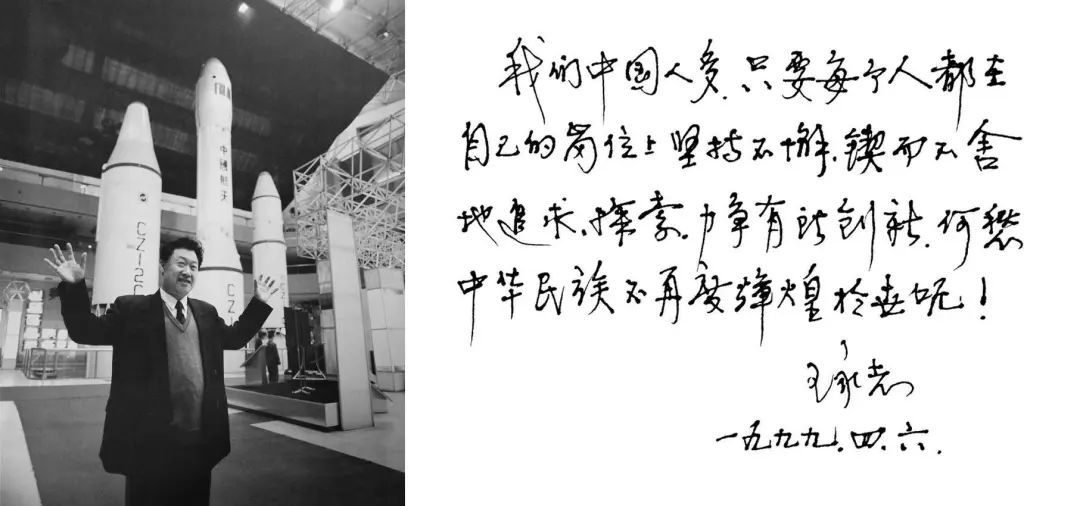 中國航天
CZ-1
CZ-2
CZ
我们中国人多,只要每个人都在
自己的岗位上坚持不懈,锲而不舍
地追求、探索,力争有所创新,何愁
中华民族不再度辉煌于世呢!
王永志
一九九九.四.六.